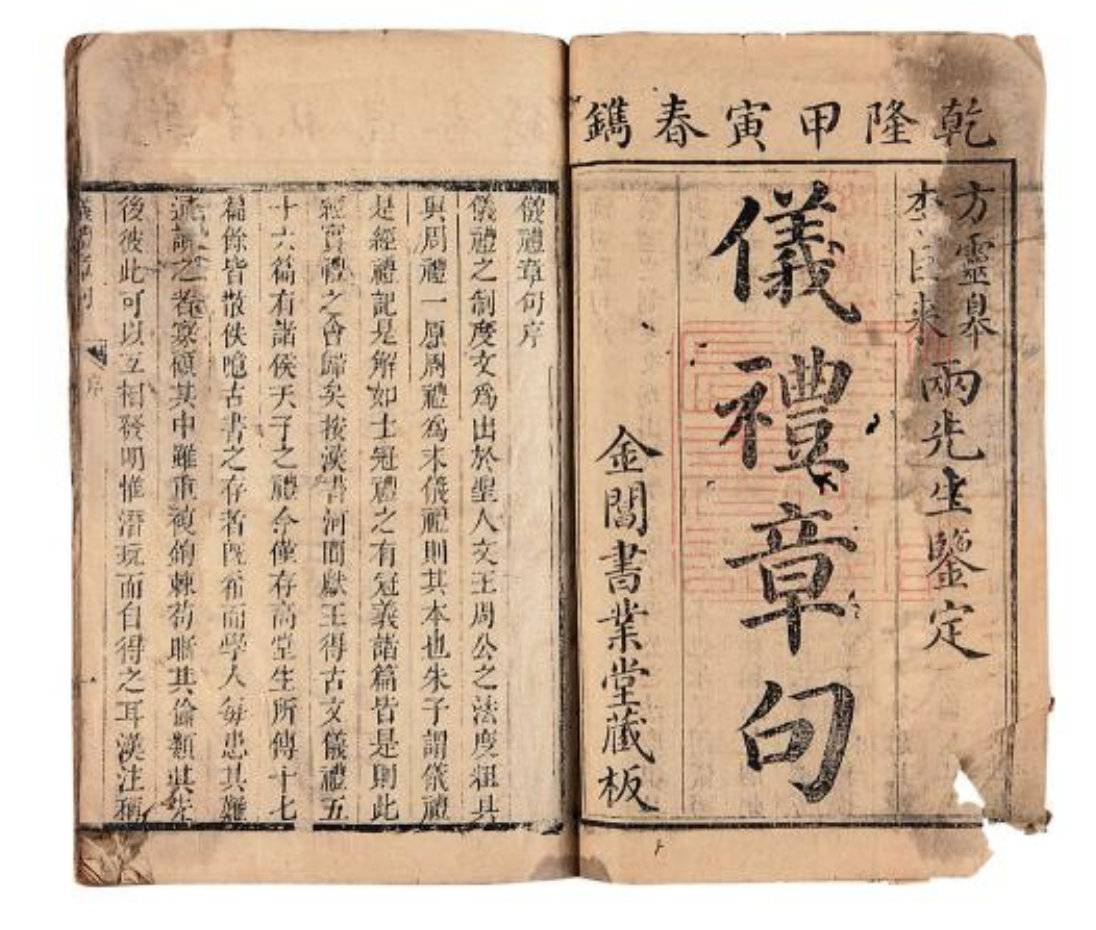 乾隆甲寅春鐫
方靈皋
李巨來
兩先生鑒定
儀禮章句
金閶書業堂藏板
儀禮章句序
儀禮之制度文為出於聖人文王周公之法度粗具
與周禮一原周禮為末儀禮則其本也朱子謂儀禮
是經禮記是解如士冠禮之有冠義諸篇皆是則此
經實禮之會歸矣按漢書河間獻王得古文儀禮五
十六篇有諸侯天子之禮今僅存高堂生所傳十七
篇餘皆散佚噫古書之存者既希而學人每患其難
通讀之者寡顧其中雖重複棘苟晰其倫類其先
後彼此可以互相發明惟潛玩而自得之耳漢注稱
儀禮章句 序 一